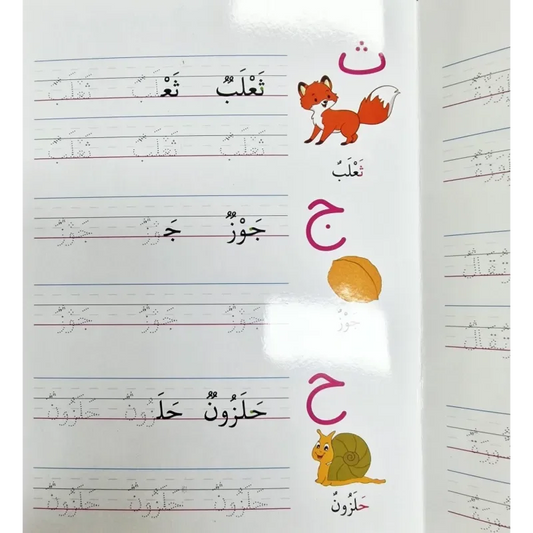 ث
ثَعْلَبٌ ثَعْلَبٌ ثَعْلَبٌ
ثَعْلَبٌ ثَعْلَبٌ ثَعْلَبٌ
ثَعْلَبٌ
ج
جَوْزٌ جَوْزٌ جَوْزٌ
جَوْزٌ جَوْزٌ جَوْزٌ
جَوْزٌ
ح
حَلَزُونٌ حَلَزُونٌ حَلَزُونٌ
حَلَزُونٌ حَلَزُونٌ حَلَزُونٌ
حَلَزُونٌ